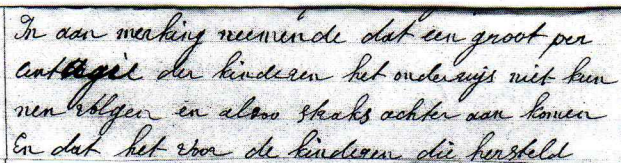 In aan merking neemende dat een groot per
centagie der kinderen het onderwijs niet kun
nen volgen en alzoo straks achter aan komen
En dat het voor de kinderen die hersteld